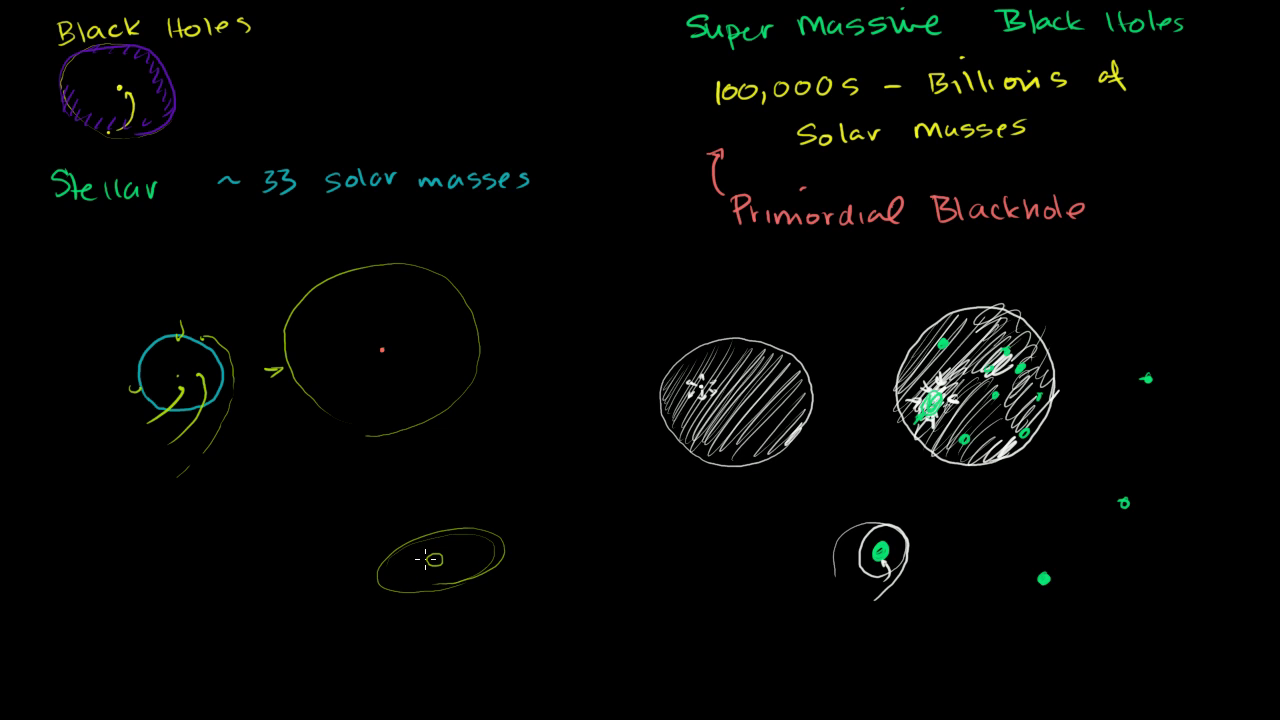 Black Holes
Stellar ~ 33 solar masses
Super Massive Black Holes
100,000s - Billions of
Solar Masses
Primordial Blackhole